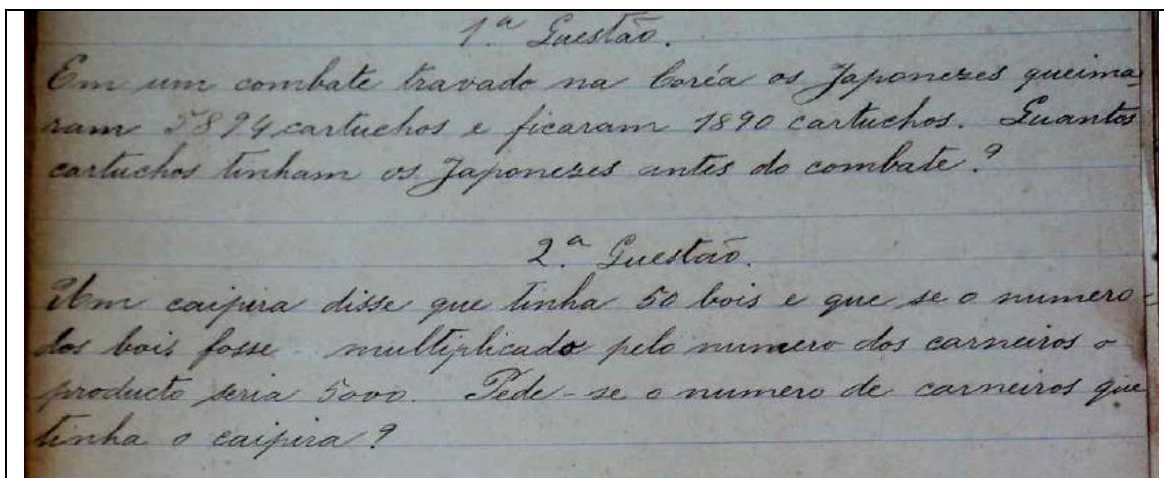 1.ª Questão.
Em um combate travado na Coréa os Japonezes queima-
ram 5894 cartuchos e ficaram 1890 cartuchos. Quantos
cartuchos tinham os Japonezes antes do combate?
2.ª Questão.
Um caipira disse que tinha 50 bois e que se o numero
dos bois fosse multiplicado pelo numero dos carneiros o
producto seria 5000. Pede-se o numero de carneiros que
tinha o caipira?